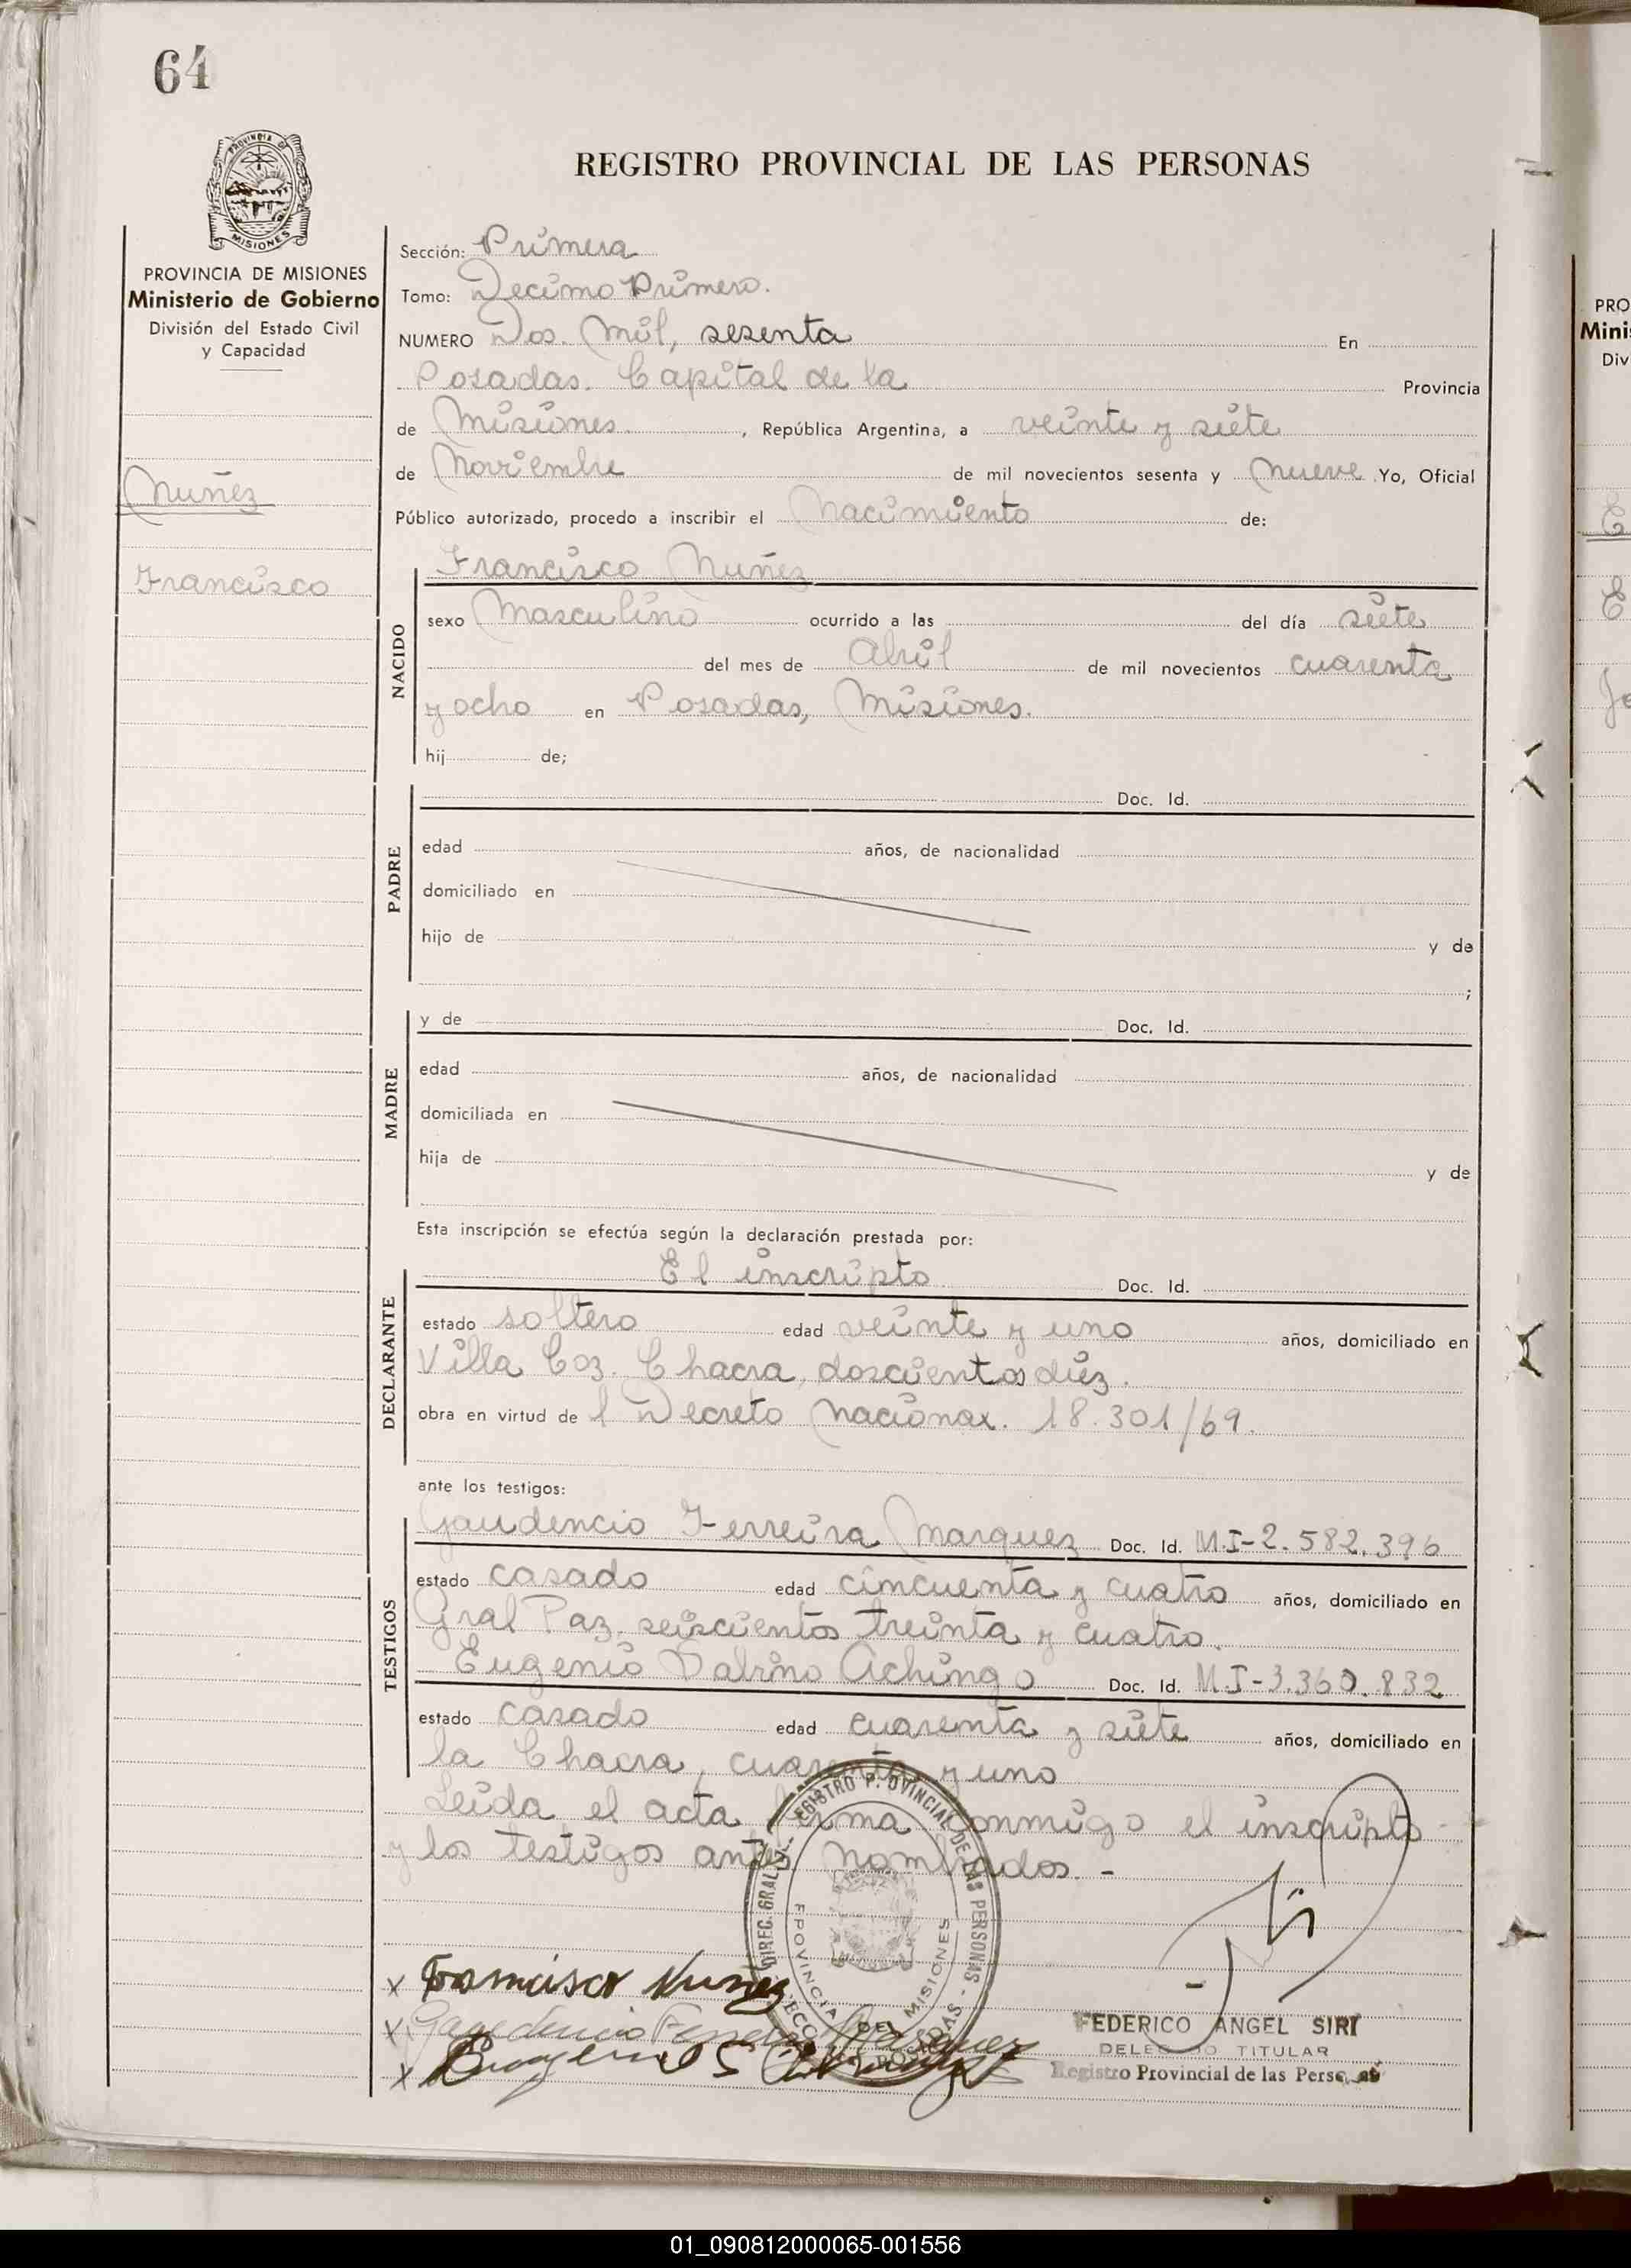 64
PROVINCIA DE
MISIONES
REGISTRO PROVINCIAL DE LAS PERSONAS
PROVINCIA DE MISIONES
Ministerio de Gobierno
División del Estado Civil
y Capacidad
Nuñez
Francisco
Sección: Primera
Tomo: Decimo Primero.
NUMERO Dos. Mil, sesenta En
Posadas. Capital de la Provincia
de Misiones. , República Argentina, a veinte y siete
de Noviembre de mil novecientos sesenta y nueve Yo, Oficial
Público autorizado, procedo a inscribir el Nacimiento de:
NACIDO
Francisco Nuñez
sexo Masculino ocurrido a las del día siete
del mes de Abril de mil novecientos cuarenta
y ocho en Posadas, Misiones.
hij de;
PADRE
Doc. Id.
edad años, de nacionalidad
domiciliado en
hijo de y de
;
MADRE
y de Doc. Id.
edad años, de nacionalidad
domiciliada en
hija de y de
Esta inscripción se efectúa según la declaración prestada por:
DECLARANTE
El inscripto Doc. Id.
estado soltero edad veinte y uno años, domiciliado en
Villa Coz. Chacra, doscientos diez.
obra en virtud de l Decreto Nacional. 18.301/69.
ante los testigos:
TESTIGOS
Gaudencio Ferreira Marquez Doc. Id. M.I-2.582.396
estado casado edad cincuenta y cuatro años, domiciliado en
Gral Paz, seiscientos treinta y cuatro.
Eugenio Achingo Doc. Id. M.I-3.360.832
estado casado edad cuarenta y siete años, domiciliado en
la Chacra, cuarenta y uno
Leida el acta firma conmigo el inscripto
y los testigos antes nombrados. -
DIREC. GRAL. DEL REGISTRO PROVINCIAL DE LAS PERSONAS - POSADAS
PROVINCIA DE MISIONES
x Francisco Nuñez
x Gaudencio Ferreira Marquez
x Eugenio S
FEDERICO ANGEL SIRI
DELEGADO TITULAR
Registro Provincial de las Personas
PRO
Minis
Div
01_090812000065-001556